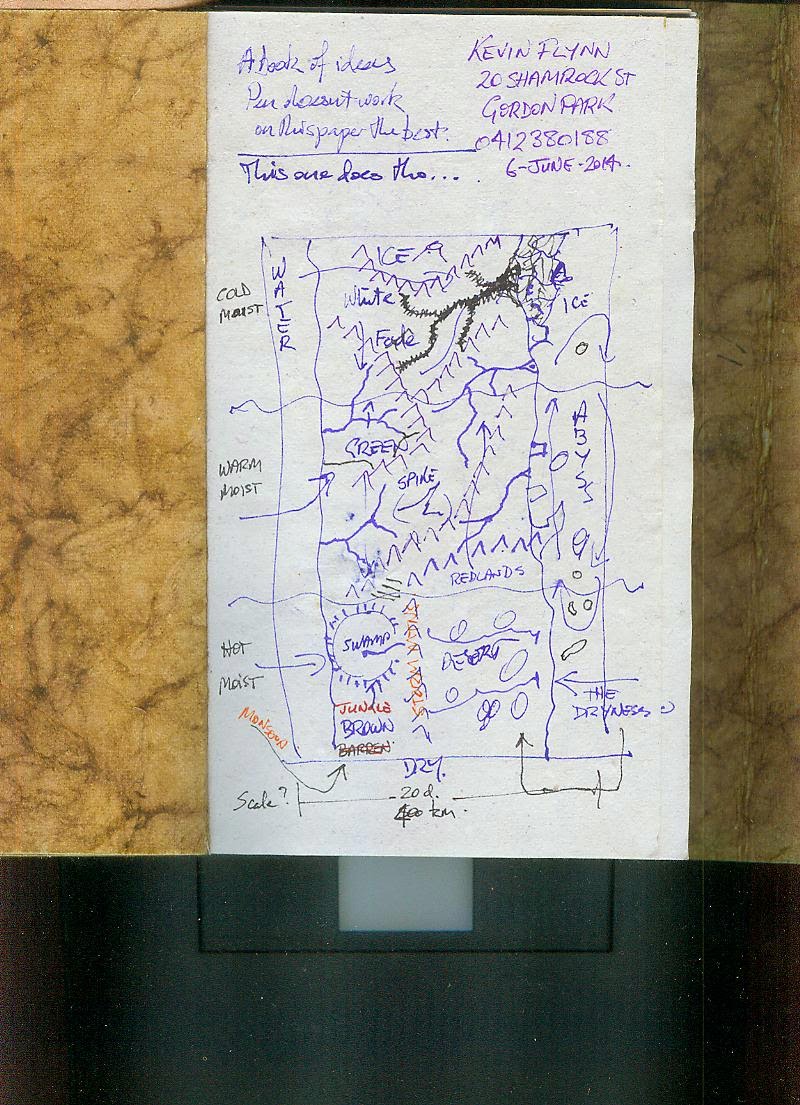 A book of ideas
Pen doesn't work
on this paper the best.
This one does tho...
KEVIN FLYNN
20 SHAMROCK ST
GORDON PARK
0412380188
6-JUNE-2014.
WATER
ICE
White
Fade
ICE
COLD
MOIST
GREEN
SPIKE
ABYSS
WARM
MOIST
REDLANDS
SWAMP
DESERT
HOT
MOIST
THE
DRYNESS
MONSOON
JUNGLE
BROWN
BARREN
DRY.
Scale?
20 d.
400 km.